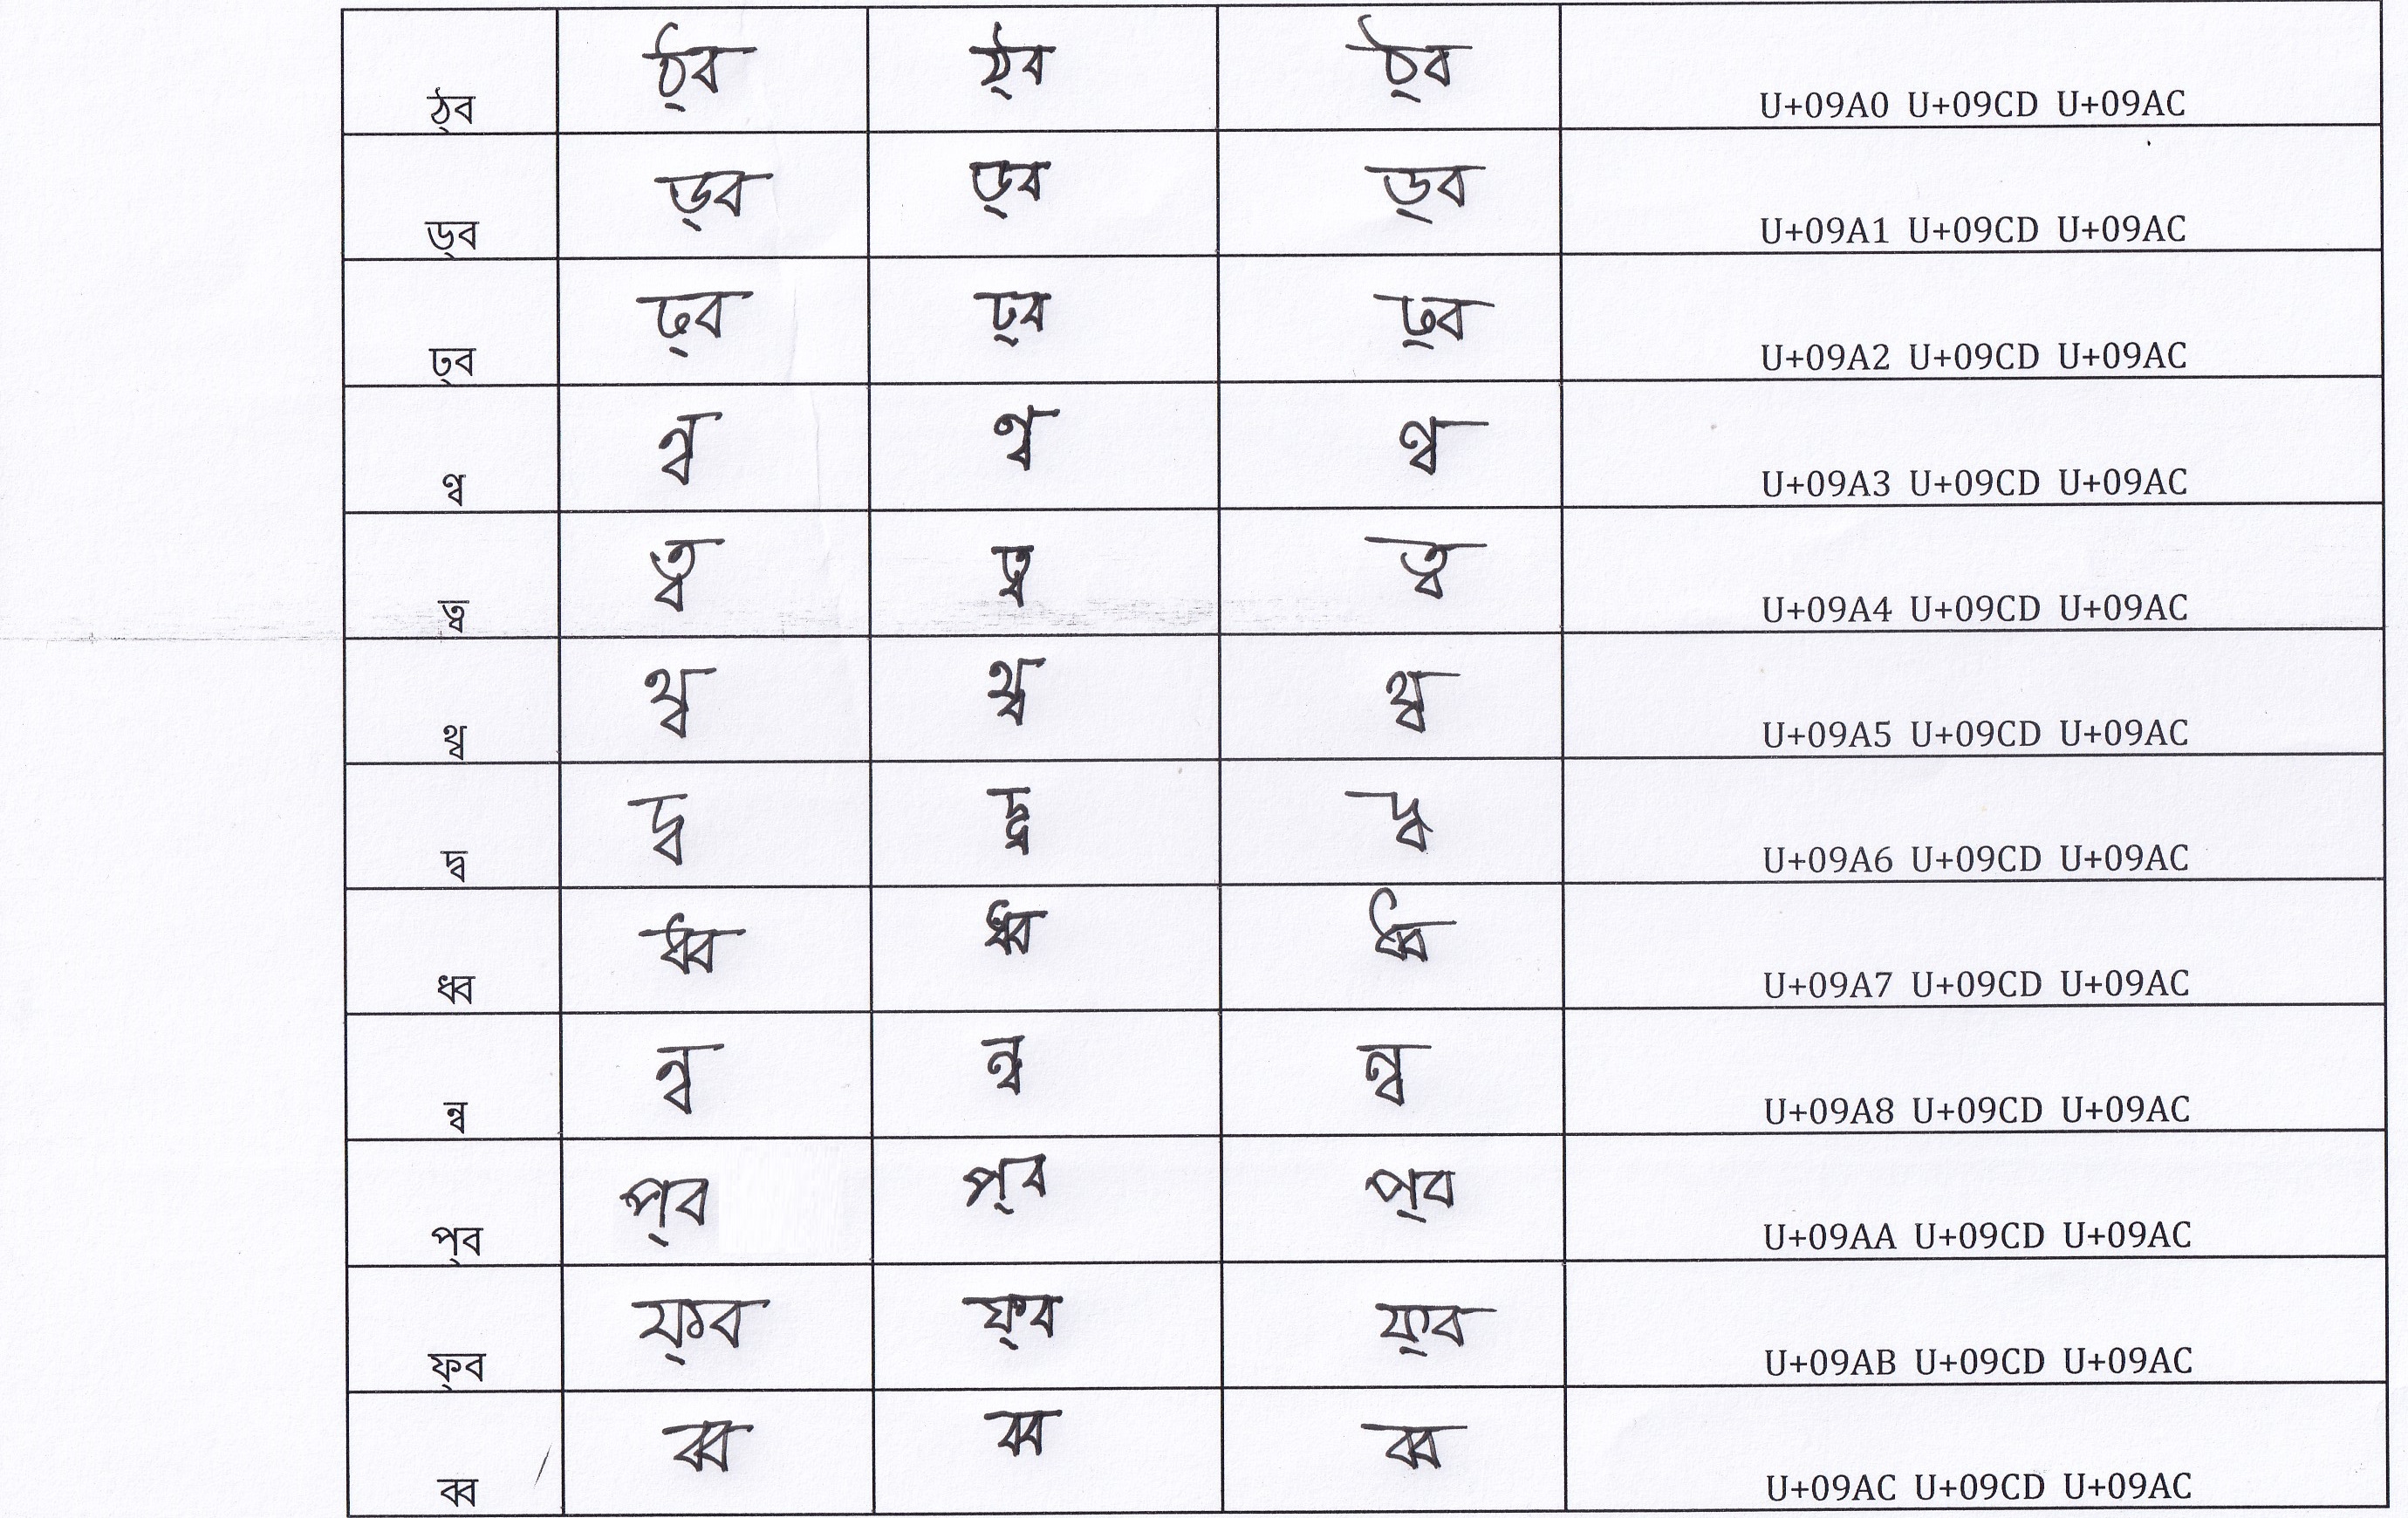 ঠ্ব ঠ্ব ঠ্ব ঠ্ব U+09A0 U+09CD U+09AC
ড্ব ড্ব ড্ব ড্ব U+09A1 U+09CD U+09AC
ঢ্ব ঢ্ব ঢ্ব ঢ্ব U+09A2 U+09CD U+09AC
ণ্ব ণ্ব ণ্ব ণ্ব U+09A3 U+09CD U+09AC
ত্ব ত্ব ত্ব ত্ব U+09A4 U+09CD U+09AC
থ্ব থ্ব থ্ব থ্ব U+09A5 U+09CD U+09AC
দ্ব দ্ব দ্ব দ্ব U+09A6 U+09CD U+09AC
ধ্ব ধ্ব ধ্ব ধ্ব U+09A7 U+09CD U+09AC
ন্ব ন্ব ন্ব ন্ব U+09A8 U+09CD U+09AC
প্ব প্ব প্ব প্ব U+09AA U+09CD U+09AC
ফ্ব ফ্ব ফ্ব ফ্ব U+09AB U+09CD U+09AC
ব্ব ব্ব ব্ব ব্ব U+09AC U+09CD U+09AC